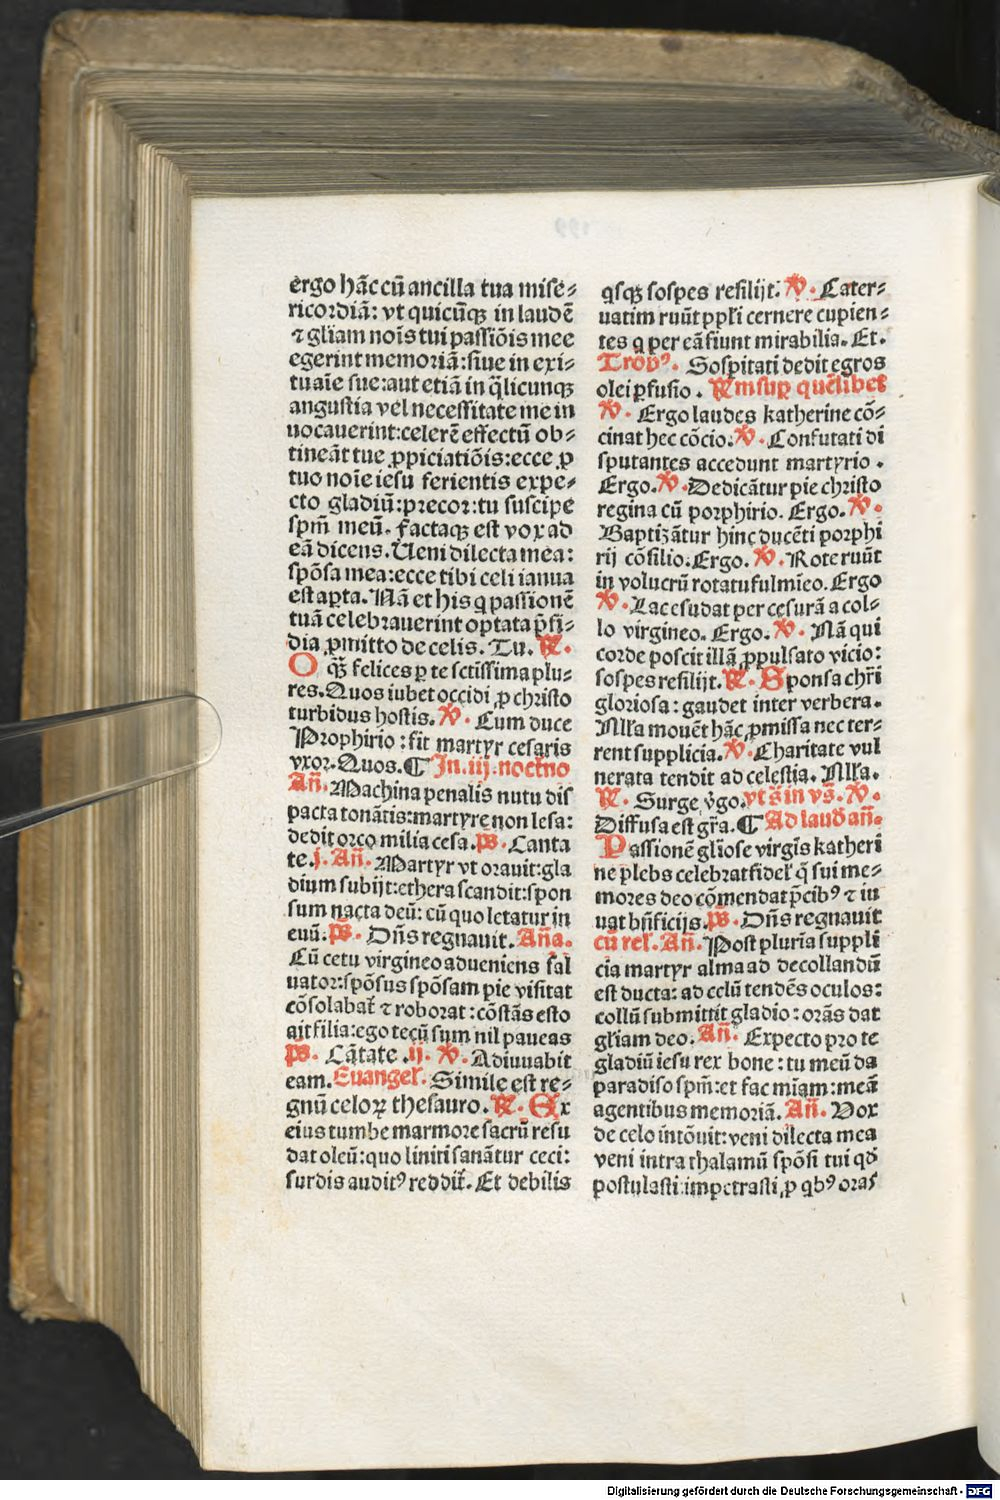 ergo hāc cū ancilla tua mise⸗
ricordiā: vt quicūqꝫ in laudē
⁊ gl̄iam noīs tui passiōis mee
egerint memoriā: siue in exi⸗
tu aīe sue: aut etiā in q̄licunqꝫ
angustia vel necessitate me in
uocauerint: celerē effectū ob⸗
tineāt tue ꝓpiciatiōis: ecce ꝓ
tuo noīe iesu ferientis expe⸗
cto gladiū: precor: tu suscipe
spm̄ meū. factaqꝫ est vox ad
eā dicens. Ueni dilecta mea:
spōsa mea: ecce tibi celi ianua
est aꝑta. Nā et his q passionē
tuā celebrauerint optata p̄si⸗
dia ꝓmitto de celis. Tu. R.
O qꝫ̄ felices ꝑ te sctissima plu⸗
res. Quos iubet occidi ꝓ christo
turbidus hostis. V. Cum duce
Prophirio: fit martyr cesaris
vxor. Quos. ¶ In .iij. noctno
Añ. Machina penalis nutu dis
pacta tonātis: martyre non lesa:
dedit orco milia cesa. ps̄. Canta
te. j. Añ. Martyr vt orauit: gla
dium subijt: ethera scandit: spon
sum nacta deū: cū quo letatur in
euū. ps̄. Dn̄s regnauit. Aña.
Cū cetu virgineo adueniens sal
uator: spōsus spōsam pie visitat
cōsolabat̄ ⁊ roborat: cōstās esto
ait filia: ego tecū sum nil paueas
ps̄. Cātate .ij. V. Adiuuabit
eam. Euangel̄. Simile est re⸗
gnū celoꝝ thesauro. R. Ex
eius tumbe marmore sacrū resu
dat oleū: quo liniti sanātur ceci:
surdis audit⁹ reddit̄. Et debilis
qsqꝫ sospes resilijt. V. Cater⸗
uatim ruūt ppl̄i cernere cupien⸗
tes q per eā fiunt mirabilia. Et.
Trop⁹. Sospitati dedit egros
olei ꝑfusio. Rm suꝑ quēlibet
V. Ergo laudes katherine cō⸗
cinat hec cōcio. V. Confutati di
sputantes accedunt martyrio.
Ergo. V. Dedicātur pie christo
regina cū porphirio. Ergo. V.
Baptizātur hinc ducēti porphi
rij cōsilio. Ergo. V. Rote ruūt
in volucrū rotatu fulmīeo. Ergo
V. Lac esudat per cesurā a col⸗
lo virgineo. Ergo. V. Nā qui
corde poscit illā ꝓpulsato vicio:
sospes resilijt. R. Sponsa chr̄i
gloriosa: gaudet inter verbera.
Nll̄a mouēt hāc ꝓmissa nec ter⸗
rent supplicia. V. Charitate vul
nerata tendit ad celestia. Nll̄a.
R. Surge v̄go. vt s̄ in vs̄. V.
Diffusa est gr̄a. ¶ Ad laud̄ añ.
Passionē gl̄iose virgīs katheri
ne plebs celebrat fidel̄ q̄ sui me⸗
mores deo cōmendat p̄cib⁹ ⁊ iu
uat bn̄ficijs. ps̄. Dn̄s regnauit
cū rel̄. Añ. Post plurīa suppli
cia martyr alma ad decollandū
est ducta: ad celū tendēs oculos:
collū submittit gladio: orās dat
gl̄iam deo. Añ. Expecto pro te
gladiū iesu rex bone: tu meū da
paradiso spm̄: et fac miam̄: meā
agentibus memoriā. Añ. Vox
de celo intōuit: veni dilecta mea
veni intra thalamū spōsi tui qđ
postulasti impetrasti, ꝓ qb⁹ oras
Digitalisierung gefördert durch die Deutsche Forschungsgemeinschaft - DFG